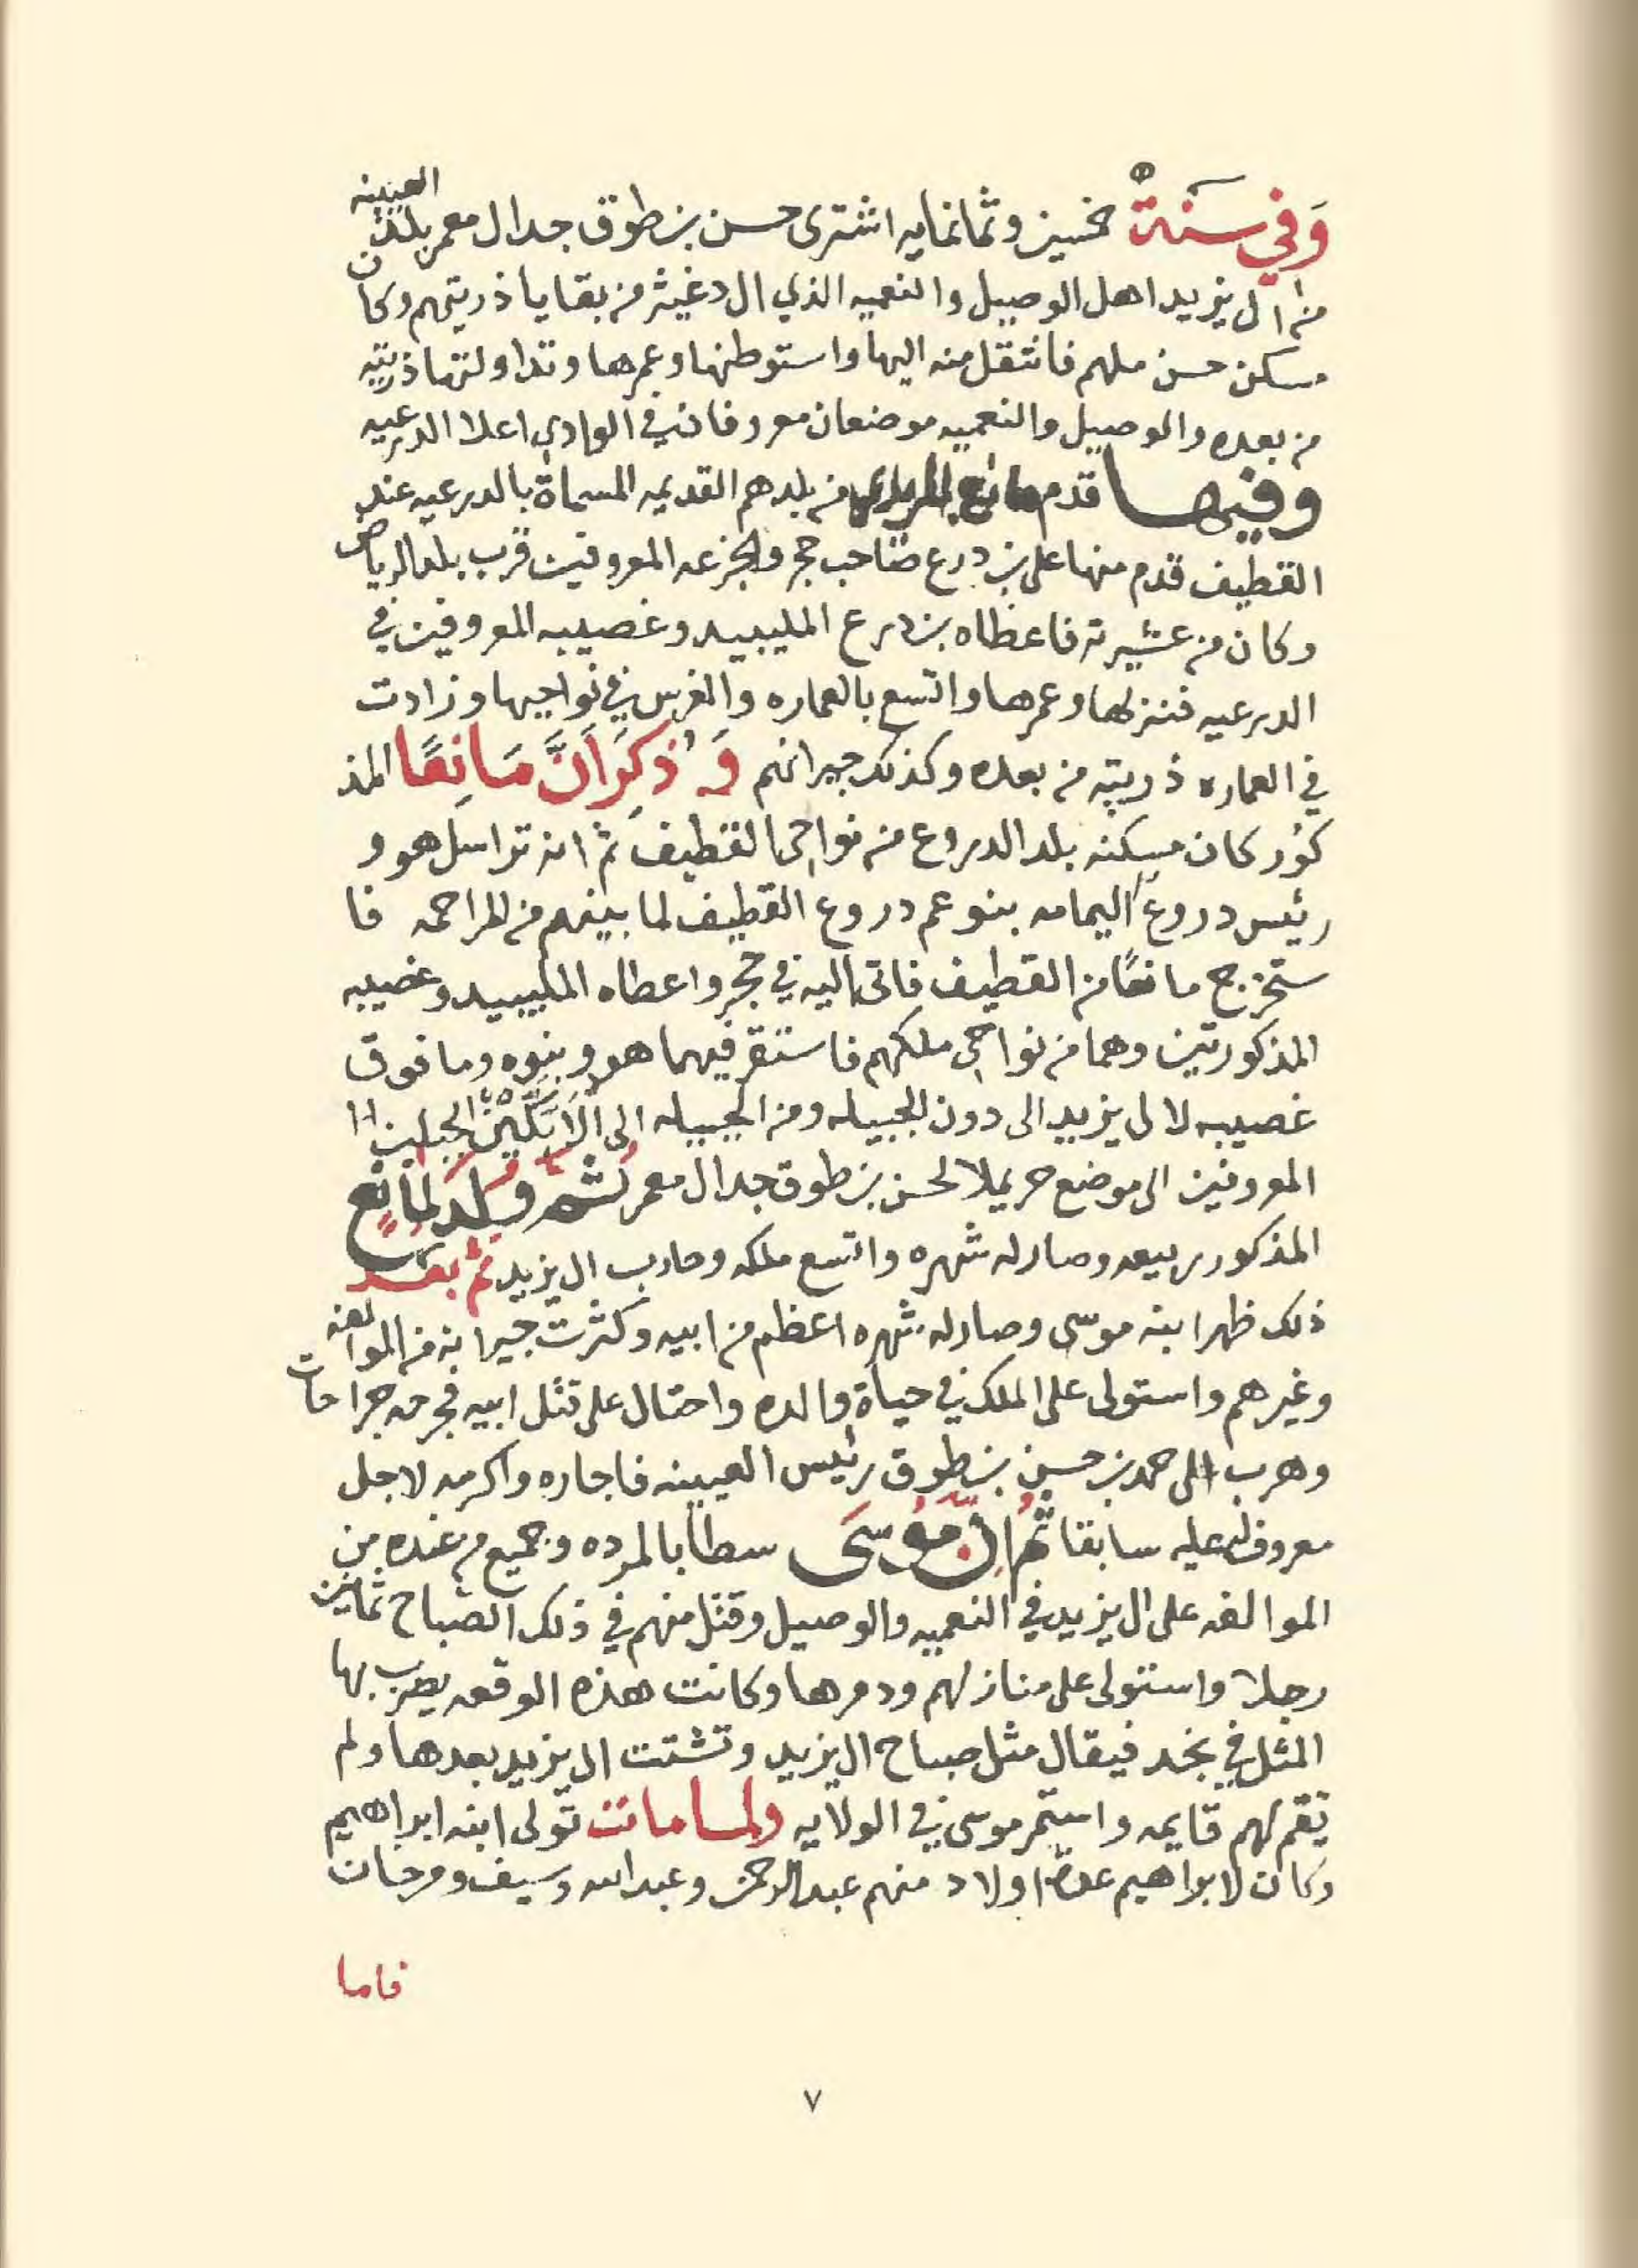 وَفي سَنَةْ خمسين وثمانمايه اشترى حسن بن طوق جد ال معمر بلد العيينه
من ال يزيد اهل الوصيل والنعميه الذي ال دغيثر من بقايا ذريتهم وكان
مسكن حسن ملهم فانتقل منه اليها واستوطنها وعمرها وتداولتها ذريته
من بعده والوصيل والنعميه موضعان معروفان في الوادي اعلا الدرعيه
وفيها قدم مانع المريدي من بلدهم القديمه المسماة بالدرعيه عند
القطيف قدم منها على بن درع صاحب حجر والجزعه المعروفين قرب بلد الرياض
وكان من عشيرته فاعطاه بن درع المليبيد وغصيبه المعروفين في
الدرعيه فنزلها وعمرها واتسع بالعماره والغرس في نواحيها وزادت
في العماره ذريته من بعده وكذلك جيرانهم وَذُكِرَ اَنَّ مَانِعًا المذ
كوُر كان مسكنه بلد الدروع من نواحي القطيف ثم انه تراسل هو و
رئيس دروع اليمامه بنو عم دروع القطيف لما بينهم من المراحمه فا
ستخرج مانعًا من القطيف فاتى اليه في حجر واعطاه المليبيد وغصيبه
المذكورتين وهما من نواحي ملكهم فاستقر فيهما هو وبنوه وما فوق
غصيبه لال يزيد الى دون الجبيله ومن الجبيله الى الابكين الجبلين
المعروفين الى موضع حريملا لحسن بن طوق جد ال معمر ثم ولد لمانع
المذكور ربيعه وصار له شهره واتسع ملكه وحارب ال يزيد ثم بعد
ذلك ظهر ابنه موسى وصار له شهره اعظم من ابيه وكثرت جيرانه من الموالفه
وغيرهم واستولى على الملك في حياة والده واحتال على قتل ابيه فجرحه جراحات
وهرب الى حمد بن حسن بن طوق رئيس العيينه فاجاره واكرمه لاجل
معروف له عليه سابقا ثم ان موسى سطا بالمرده وجميع من عنده من
الموالفه على ال يزيد في النعميه والوصيل وقتل منهم في ذلك الصباح ثمانين
رجلا واستولى على منازلهم ودمرها وكانت هذه الوقعه يضرب بها
المثل في نجد فيقال مثل صباح ال يزيد وتشتت ال يزيد بعدها ولم
تقم لهم قايمه واستمر موسى في الولايه ولما مات تولى ابنه ابراهيم
وكان لابراهيم عدة اولاد منهم عبدالرحمن وعبدالله وسيف ومرخان
فاما
٧